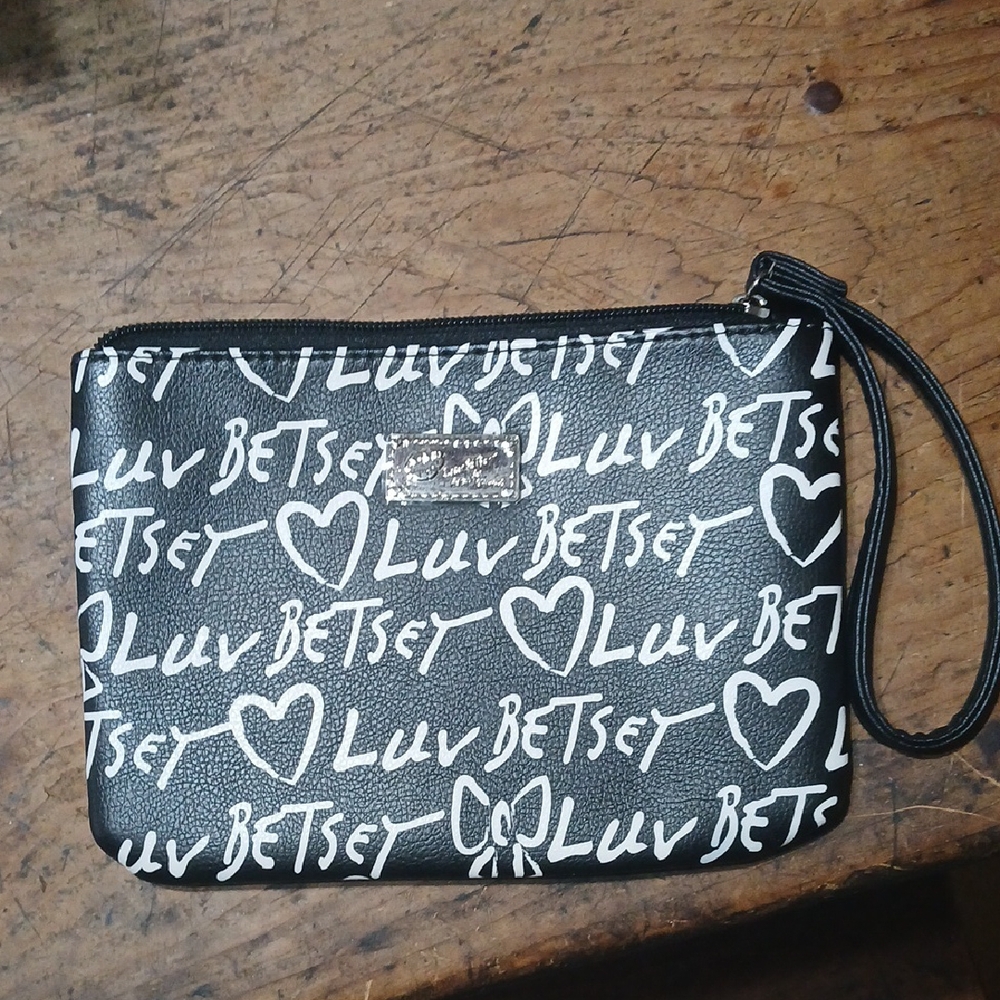 BETSEY LUV BETSEY L
LUV BETSEY LUV BETSE
BETSEY LUV BETSEY
LUV BETSEY LUV BET
BETSEY LUV BETSEY L
LUV BETSEY LUV BETS